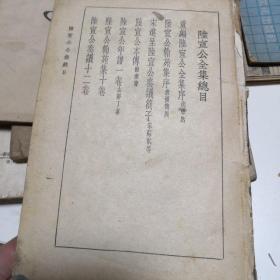 陸宣公全集總目
重編陸宣公全集序
陸宣公翰苑集序
宋進呈陸宣公奏議劄子
陸宣公本傳
陸宣公年譜一卷
陸宣公翰苑集十卷
陸宣公奏議十二卷
陸宣公全集總目